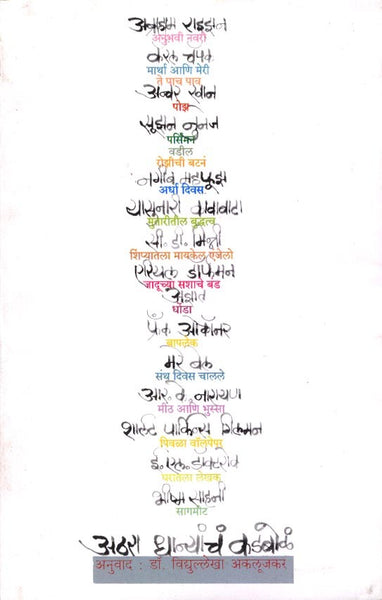 अब्राहम राइझान
अनुभवी नवरी
केरल चॅपेक
मार्था आणि मेरी
ते पाच पाव
अन्वर खान
पोझ
सूझन नुनज
पर्सिमन
वडील
रोझीची बटनं
नगीब महफूझ
अर्धा दिवस
यासुनारी कावाबाटा
मुतारीतील बुद्धत्व
सी. डी. मिन्नी
शिंप्यातला मायकेल एंजेलो
एरियल डॉर्फमन
जादूच्या सशाचे बंड
अज्ञात
घोडा
फ्रँक ओकॉनर
बापलेक
मेरे वेल
संथ दिवस चालले
आर. के. नारायण
मीठ आणि भुस्सा
शार्लट पार्किन्स गिलमन
पिवळा वॉलपेपर
इ. एल. डाक्टरोव
घरातला लेखक
भीष्म साहनी
सागमीट
अठरा धान्यांचं कडबोळं
अनुवाद : डॉ. विद्युल्लेखा अकलूजकर